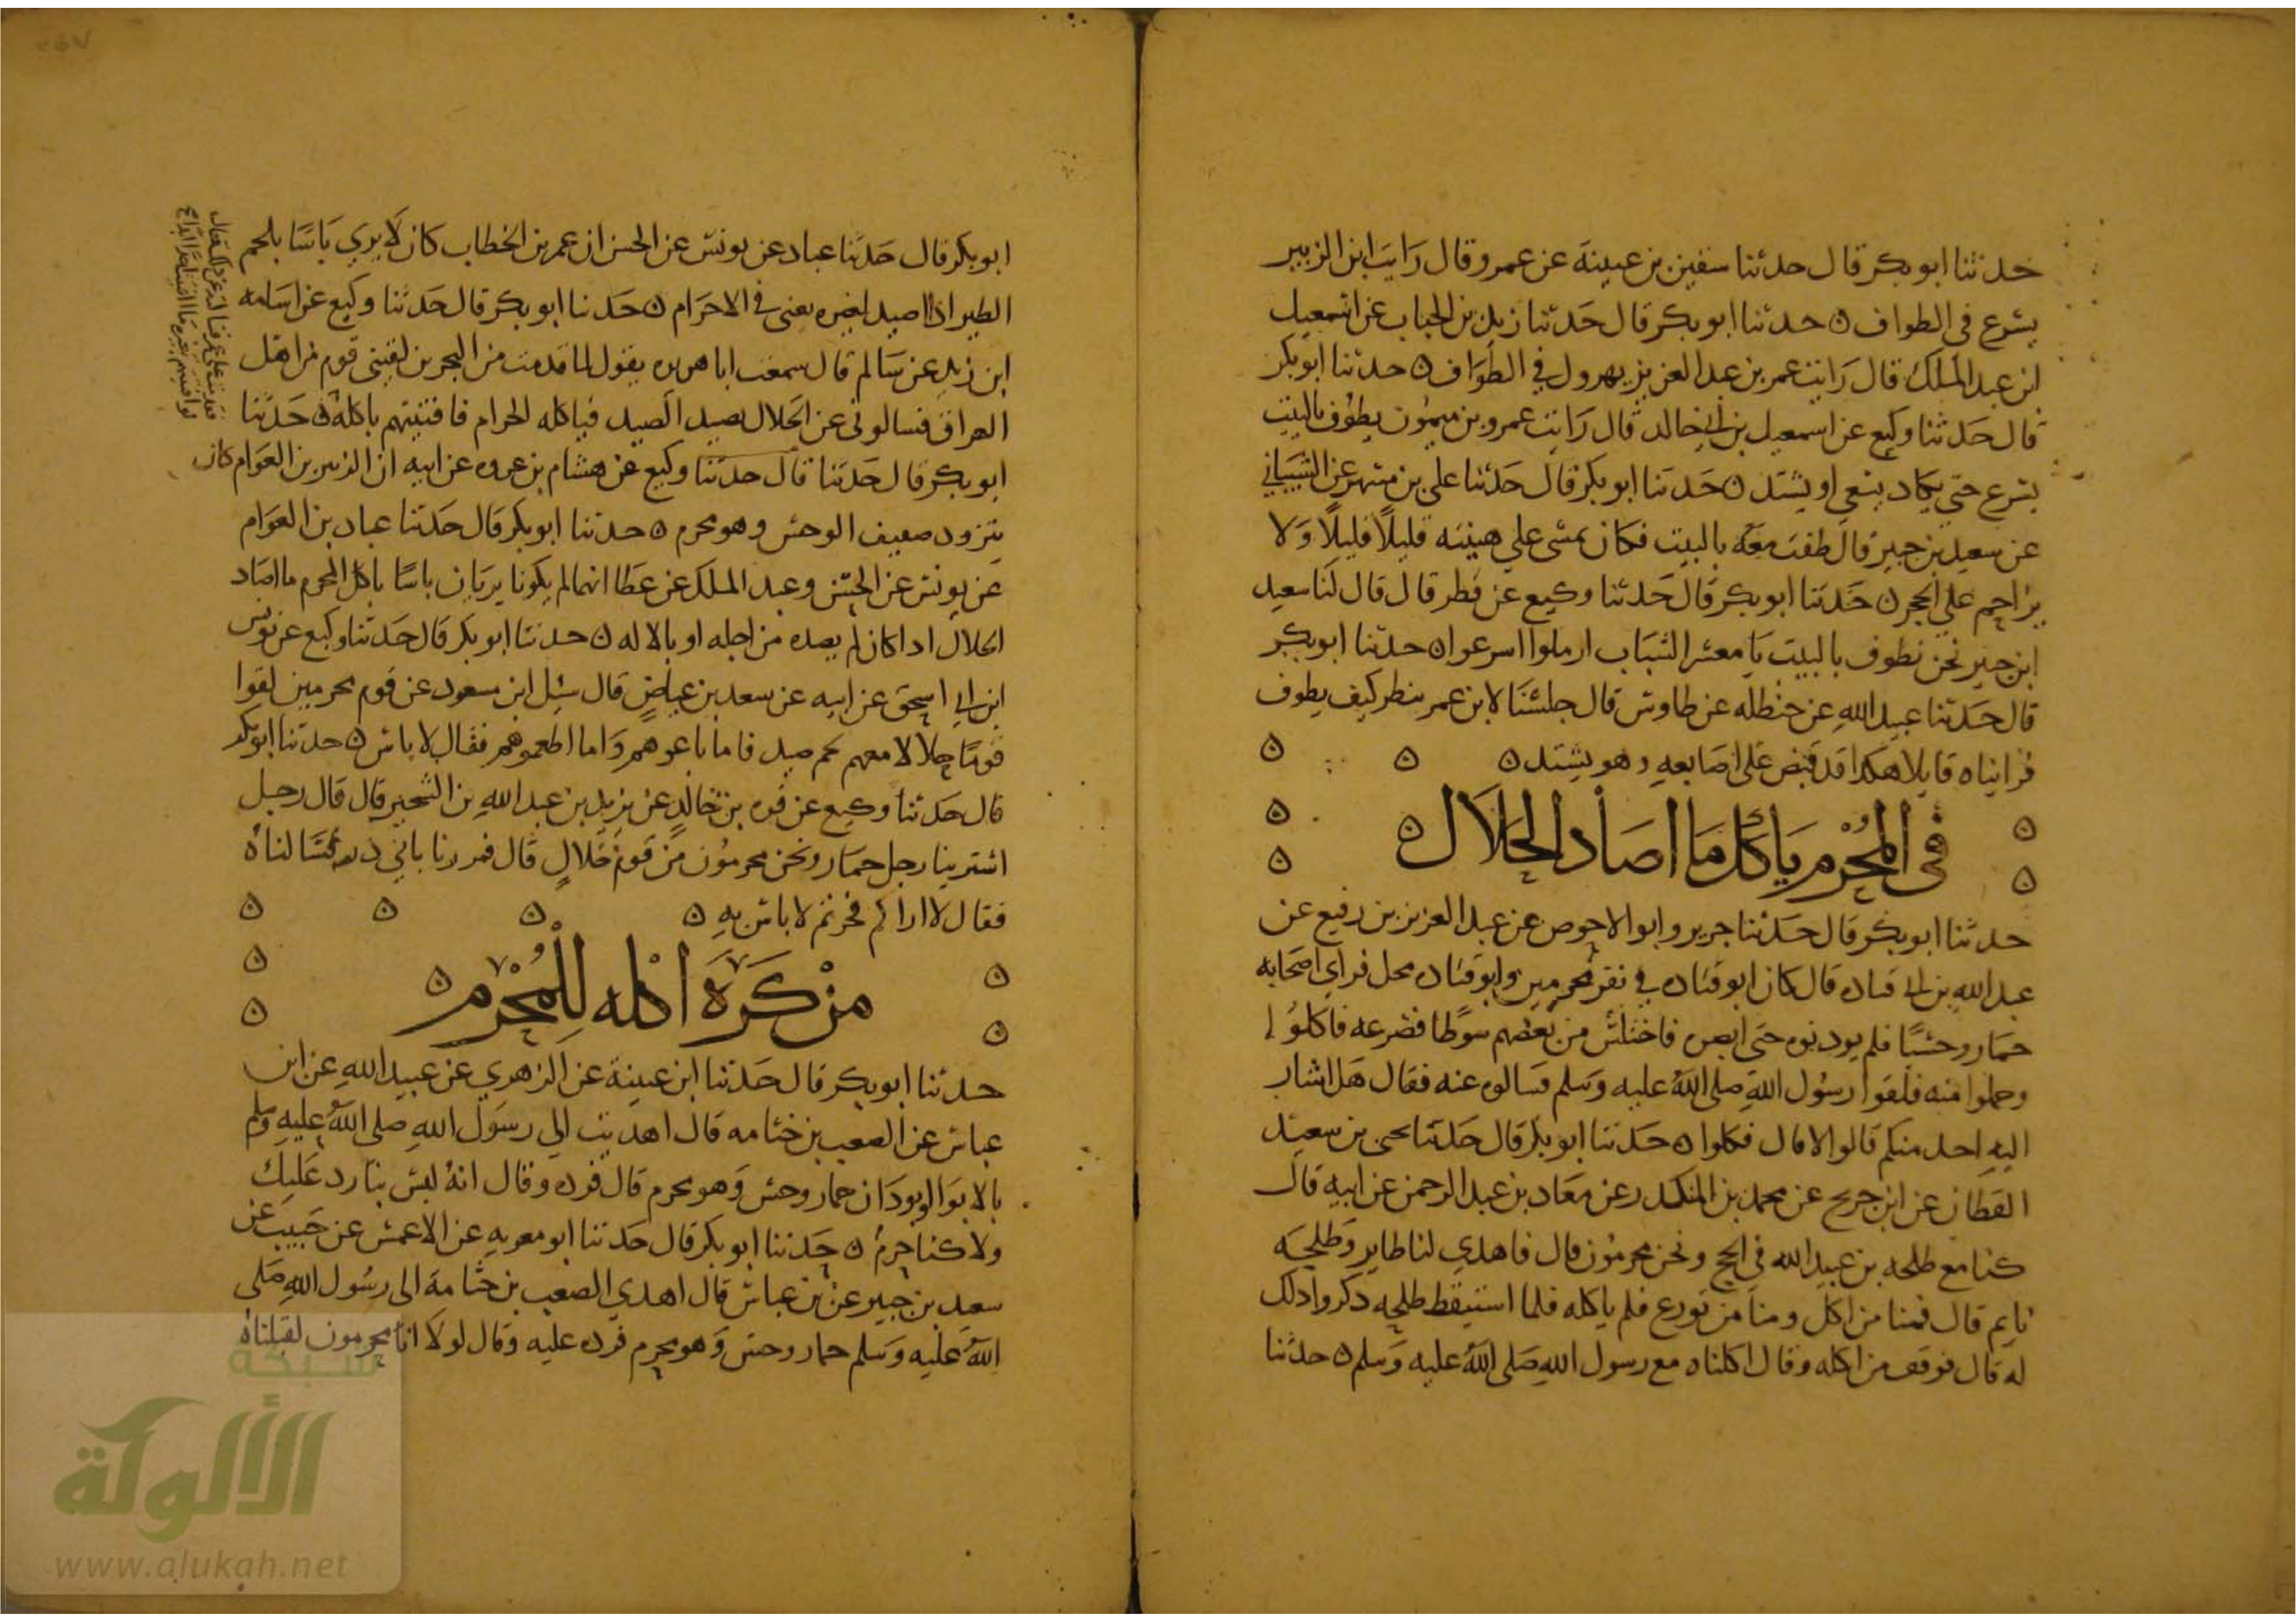 حدثنا ابو بكر قال حدثنا سفين بن عيينة عن عمرو قال رايت ابن الزبير
يسرع في الطواف ه حدثنا ابو بكر قال حدثنا زيد بن الحباب عن اسمعيل
ابن عبد الملك قال رايت عمر بن عبد العزيز يهرول في الطواف ه حدثنا ابو بكر
قال حدثنا وكيع عن اسمعيل بن ابي خالد قال رايت عمرو بن ميمون يطوف بالبيت
يسرع حتي يكاد يسعي او يشتد ه حدثنا ابو بكر قال حدثنا علي بن مسهر عن الشيباني
عن سعيد بن جبير قال طفت معه بالبيت فكان يمشي علي هينته قليلا قليلا ولا
يزاحم علي الحجر ه حدثنا ابو بكر قال حدثنا وكيع عن فطر قال قال لنا سعيد
ابن جبير نحن نطوف بالبيت يا معشر الشباب ارملوا اسرعوا ه حدثنا ابو بكر
قال حدثنا عبيد الله عن حنظله عن طاوس قال جلسنا لابن عمر ننظر كيف يطوف
فرايناه قايلا هكذا قد قبض علي اصابعه وهو يشتد ه
في المحرم ياكل ما اصاد الحلال ه
حدثنا ابو بكر قال حدثنا جرير وابو الاحوص عن عبد العزيز بن رفيع عن
عبد الله بن ابي قتاده قال كان ابو قتاده في نفر محرمين وابو قتاده محل فراي اصحابه
حمار وحشيا فلم يوذنوه حتي ابصره فاختلس من بعضهم سوطا فصرعه فاكلوا
وحملوا منه فلقوا رسول الله صلى الله عليه وسلم فسالوه عنه فقال هل اشار
اليه احد منكم قالوا لا قال فكلوا ه حدثنا ابو بكر قال حدثنا يحيى بن سعيد
القطان عن ابن جريج عن محمد بن المنكدر عن معاذ بن عبد الرحمن عن ابيه قال
كنا مع طلحه بن عبيد الله في الحج ونحن محرمون قال فاهدي لنا طاير وطلحه
نايم قال فمنا من اكل ومنا من تورع فلم ياكله فلما استيقظ طلحه ذكروا ذلك
له قال فوفق من اكله وقال اكلناه مع رسول الله صلى الله عليه وسلم ه حدثنا
ابو بكر قال حدثنا عباد عن يونس عن الحسن ان عمر بن الخطاب كان لا يري باسا بلحم
الطير اذا صيد لغيره يعني في الاحرام ه حدثنا ابو بكر قال حدثنا وكيع عن اسامه
ابن زيد عن سالم قال سمعت ابا هريره يقول لما قدمت من البحرين لقيني قوم من اهل
العراق فسالوني عن الحلال يصيد الصيد فياكله الحرام فافتيتهم باكله ه حدثنا
ابو بكر قال حدثنا قال حدثنا وكيع عن هشام بن عروه عن ابيه ان الزبير بن العوام كان
يتزود صفيف الوحش وهو محرم ه حدثنا ابو بكر قال حدثنا عباد بن العوام
عن يونس عن الحسن وعبد الملك عن عطا انهما لم يكونا يريان باسا باكل المحرم ما اصاد
الحلال اذا كان لم يصده من اجله او بالاله ه حدثنا ابو بكر قال حدثنا وكيع عن يونس
ابن ابي اسحق عن ابيه عن سعد بن عياض قال سئل ابن مسعود عن قوم محرمين لقوا
قوما حلالا معهم لحم صيد فاما باعوهم واما اطعموهم فقال لا باس ه حدثنا ابو بكر
قال حدثنا وكيع عن قره بن خالد عن يزيد بن عبد الله بن الشخير قال قال رجل
اشترينا رجل حمار ونحن محرمون من قوم حلال قال فمررنا بابي ذر فسالناه
فقال لا اراكم فجرتم لا باس به ه
من كره اكله للمحرم ه
حدثنا ابو بكر قال حدثنا ابن عيينة عن الزهري عن عبيد الله عن ابن
عباس عن الصعب بن جثامه قال اهديت الي رسول الله صلى الله عليه وسلم
بالابوا او بودان حمار وحش وهو محرم قال فرده وقال انه ليس بنا رد عليك
ولا كنا حرم ه حدثنا ابو بكر قال حدثنا ابو معويه عن الاعمش عن حبيب عن
سعيد بن جبير عن بن عباس قال اهدي الصعب بن جثامة الى رسول الله صلى
الله عليه وسلم حمار وحش وهو محرم فرده عليه وقال لولا انا محرمون لقبلناه
شبكة
الألوكة
www.alukah.net